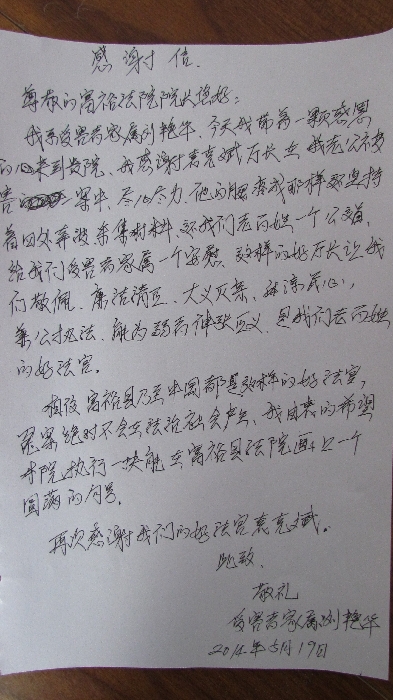 感谢信
尊敬的富裕法院院长您好:
我系受害者家属刘艳华、今天我带着一颗感恩
的心来到贵院、我感谢袁克斌厅长在我老公被
害一案中、尽心尽力、他的腰疼成那样都坚持
着四处奔波、采集材料、还我们老百姓一个公道、
给我们受害者家属一个安慰、这样的好厅长让我
们敬佩、廉洁清正、大义灭亲、体谅民心、
秉公执法、能为弱者伸张正义、是我们老百姓
的好法官。
相信富裕县乃至中国都是这样的好法官,
冤案绝对不会在法治社会产生、我由衷的希望
本院执行一块能在富裕县法院画上一个
圆满的句号。
再次感谢我们的好法官袁克斌。
此致、
敬礼
受害者家属刘艳华
2014年5月19日